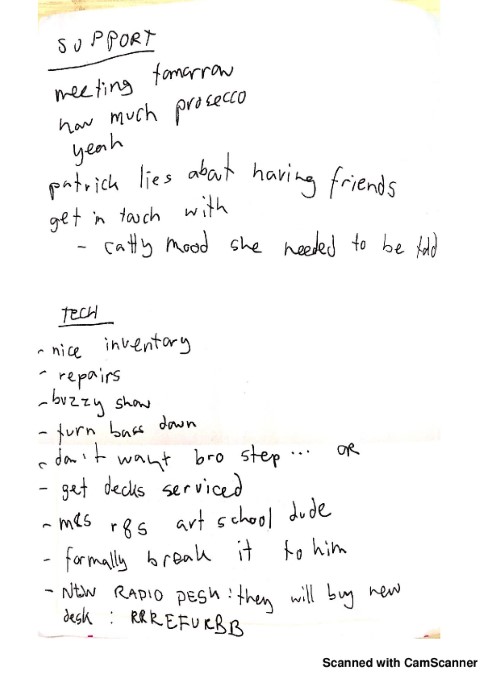 SUPPORT
meeting tomorrow
how much prosecco
yeah
patrick lies about having friends
get in touch with
- catty mood she needed to be told
TECH
- nice inventory
- repairs
- buzzy show
- turn bass down
- don't want bro step ... OR
- get decks serviced
- m&s r&s art school dude
- formally break it to him
- NEW RADIO DESK : they will buy new
desk : RRREFURBB
Scanned with CamScanner